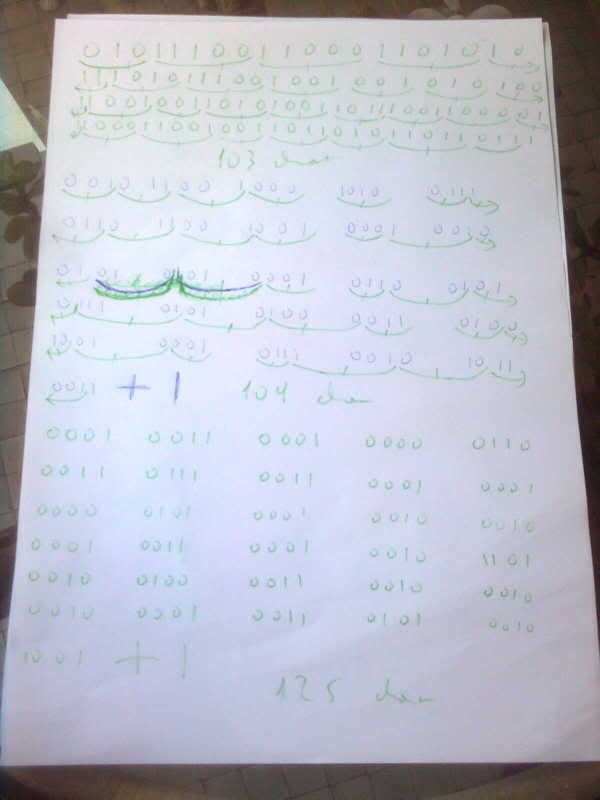 0 1 0 1 1 1 0 0 1 1 0 0 0 1 1 0 1 0 1 0
1 1 1 0 1 0 1 1 1 0 0 1 0 0 1 0 0 1 0 1 0 1 0 0
1 1 0 0 1 0 0 1 1 0 1 0 1 0 0 1 1 0 1 1 1 0 0 1 1 0 0 0 0 0 1
1 0 0 0 1 1 0 0 1 0 0 1 1 0 1 1 0 1 0 1 1 0 1 1 0 1 1 1
103
0010 11 00 1000 1010 0111
0110 1100 1001 0001 0010
01 01 0101 0001 0110 0101
0111 0101 0100 0011 0100
1001 0001 0111 0010 10 11
0011 + 1 104
0001 0011 0001 0000 0110
0011 0111 0011 0001 0001
0000 0101 0001 0010 0010
0001 0011 0001 0010 1101
0010 0100 0011 0010 0010
0010 0001 0011 0101 0010
1001 + 1
125